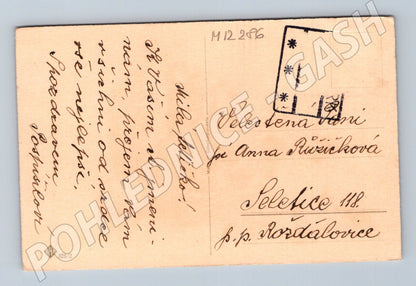 M 12 286
Milá
K Vašim jmeni-
nám, přejem Vám
všichni od srdce
vše nejlepší.
S pozdravem
Pospíšilovi
Velectěná Paní
pí Anna Růžičková
Seletice 118.
p.p. Rožďálovice
POHLEDNICE - GASH